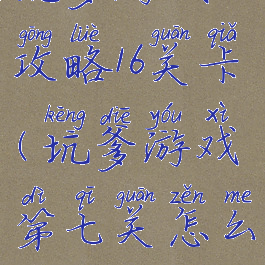 gōng lüè guān qiǎ
攻略16关卡
kēng diē yóu xì
(坑爹游戏
dì qī guān zěn me
第七关怎么